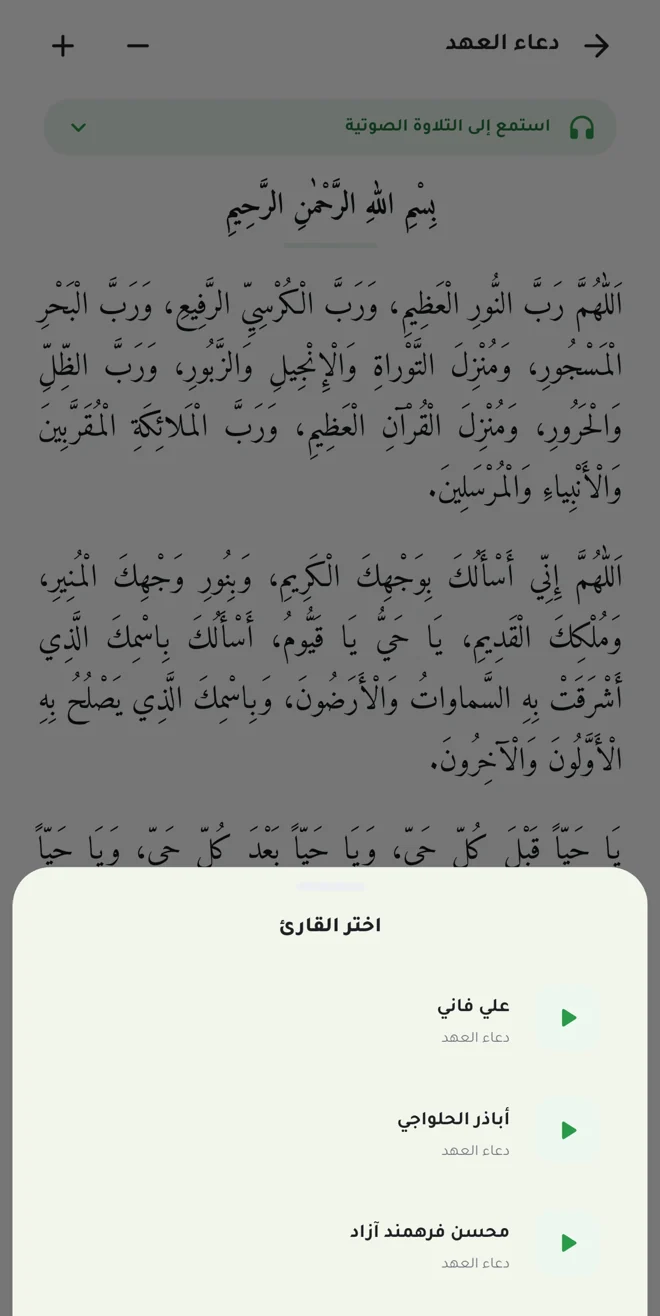 دعاء العهد
استمع إلى التلاوة الصوتية
بِسْمِ اللهِ الرَّحْمٰنِ الرَّحِيمِ
اَللّٰهُمَّ رَبَّ النُّورِ الْعَظِيمِ، وَرَبَّ الْكُرْسِيِّ الرَّفِيعِ، وَرَبَّ الْبَحْرِ
الْمَسْجُورِ، وَمُنْزِلَ التَّوْراةِ وَالْإِنْجِيلِ وَالزَّبُورِ، وَرَبَّ الظِّلِّ
وَالْحَرُورِ، وَمُنْزِلَ الْقُرْآنِ الْعَظِيمِ، وَرَبَّ الْمَلائِكَةِ الْمُقَرَّبِينَ
وَالْأَنْبِياءِ وَالْمُرْسَلِينَ.
اَللّٰهُمَّ إِنِّي أَسْأَلُكَ بِوَجْهِكَ الْكَرِيمِ، وَبِنُورِ وَجْهِكَ الْمُنِيرِ،
وَمُلْكِكَ الْقَدِيمِ، يَا حَيُّ يَا قَيُّومُ، أَسْأَلُكَ بِاسْمِكَ الَّذِي
أَشْرَقَتْ بِهِ السَّماواتُ وَالْأَرَضُونَ، وَبِاسْمِكَ الَّذِي يَصْلُحُ بِهِ
الْأَوَّلُونَ وَالْآخِرُونَ.
يَا حَيّاً قَبْلَ كُلِّ حَيٍّ، وَيَا حَيّاً بَعْدَ كُلِّ حَيٍّ، وَيَا حَيّاً
اختر القارئ
علي فاني
دعاء العهد
أباذر الحلواجي
دعاء العهد
محسن فرهمند آزاد
دعاء العهد